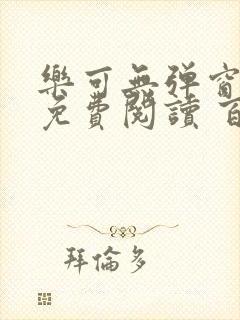 樂可無弹窗
免費閱讀 百
拜倫多